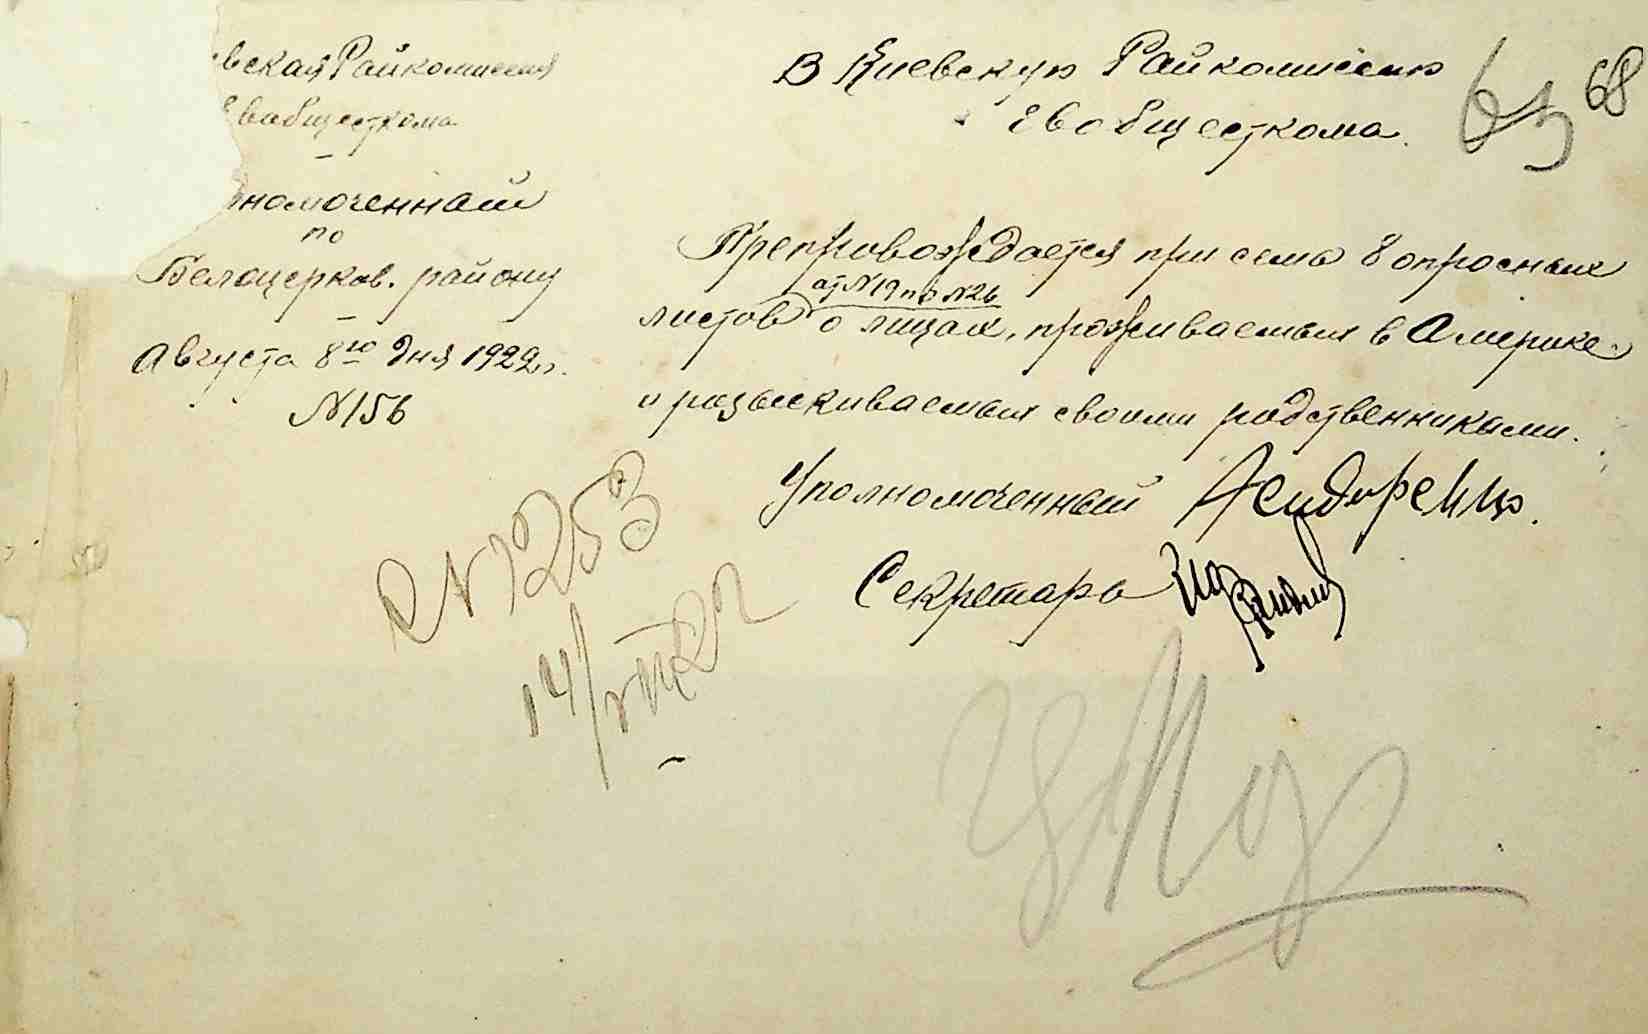 вская Райкомиссия
Евобщесткома
номоченный
по
Белоцерков. району
Августа 8го дня 1922г.
N 156
В Киевскую Райкомиссию
Евобщесткома.
68
Препровождается при семъ 8 опросных
от N19 по N26
листов о лицах, проживаемых в Америке
и разыскиваемых своими родственниками.
Уполномоченный
Секретарь
N 1253
14/VIII 22г